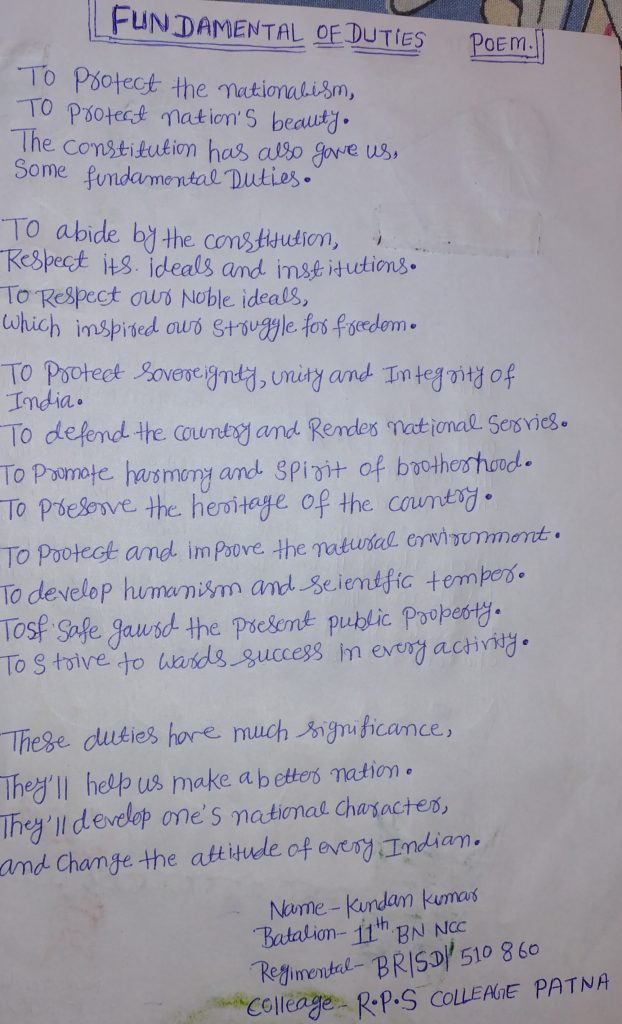 FUNDAMENTAL OF DUTIES POEM.
To Protect the nationalism,
To Protect nation's beauty.
The Constitution has also gave us,
Some fundamental Duties.
To abide by the constitution,
Respect its. ideals and institutions.
To Respect our Noble ideals,
which inspired our struggle for freedom.
To Protect Sovereignty, unity and Integrity of
India.
To defend the country and Render national Servies.
To Promote harmony and Spirit of brotherhood.
To preserve the heritage of the country.
To Protect and improve the natural environment.
To develop humanism and scientfic temper.
Tosf Safe gaurd the Present public Property.
To Strive to wards success in every activity.
These duties have much significance,
They'll help us make a better nation.
They'll develop one's national character,
and Change the attitude of every Indian.
Name - Kundan Kumar
Batalion - 11th BN NCC
Regimental - BR/SD/ 510 860
Colleage - R.P.S COLLEAGE PATNA